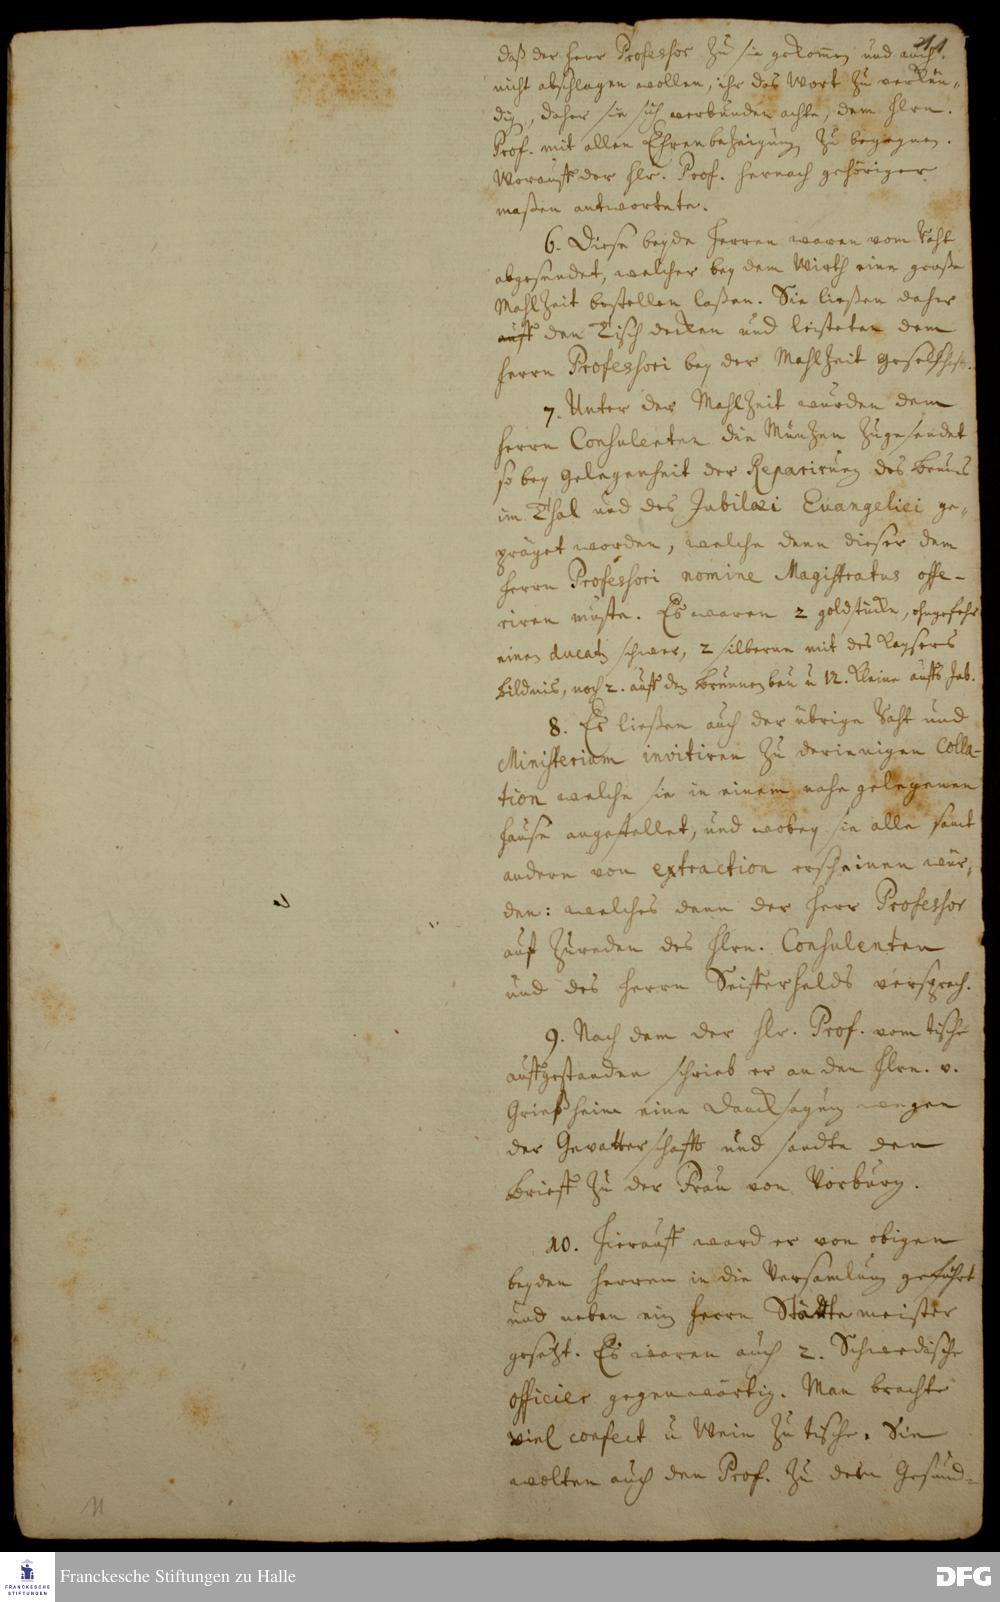 211
daß der Herr Professor zu sie gekommen und auch
nicht abschlagen wollen, ihr das Wort zu verkün-
dig, daher sie sich verbunden achte, dem Hlrn.
Prof. mit aller Ehrenbezeigung zu begegnen.
Worauff der Hlr. Prof. hernach gehöriger
maßen antwortete.
6. Diese beyde Herren waren vom Raht
abgesendet, welcher bey dem Wirth eine große
Mahlzeit bestellen laßen. Sie ließen daher
auff den Tisch decken und leisteten dem
Herrn Professori bey der Mahlzeit Gesellschafft.
7. Unter der Mahlzeit wurden dem
Herrn Consulenten die Müntzen zugesendet
so bey Gelegenheit der Reparirung des Brunns
im Thal und des Jubilaei Evangelici ge-
präget worden, welche denn dieser dem
Herrn Professori nomine Magistratus offe-
riren muste. Es waren 2 goldstücke, ohngefehr
einen ducaten schwer, 2 silberne mit des Kaysers
Bildnis, noch 2. auff den Brunnenbau u 12. kleine auffs Jub.
8. Es ließen auch der übrige Raht und
Ministerium invitiren zu derienigen Colla-
tion welche sie in einem nahe gelegenen
Hause angestellet, und wobey sie alle samt
andern von extraction erscheinen wür-
den: welches denn der Herr Professor
auf Zureden des Hlrn. Consulenten
und des Herrn Seifferhelds versprach.
9. Nach dem der Hlr. Prof. vom tische
auffgestanden schrieb er an den Hlrn. v.
Grießheim eine Dancksagung wegen
der Gevatterschafft und sandte den
Brieff zu der Frau von Vorburg.
10. Hierauff ward er von obigen
beyden Herren in die Versamlung geführt
und neben ein Herrn Städtemeister
gesetzt. Es waren auch 2. Schwedische
officier gegenwärtig. Man brachte
viel confect u Wein zu tische. Sie
wolten auch den Prof. zu dem Gesund-
Franckesche Stiftungen zu Halle
FRANCKESCHE
STIFTUNGEN
DFG